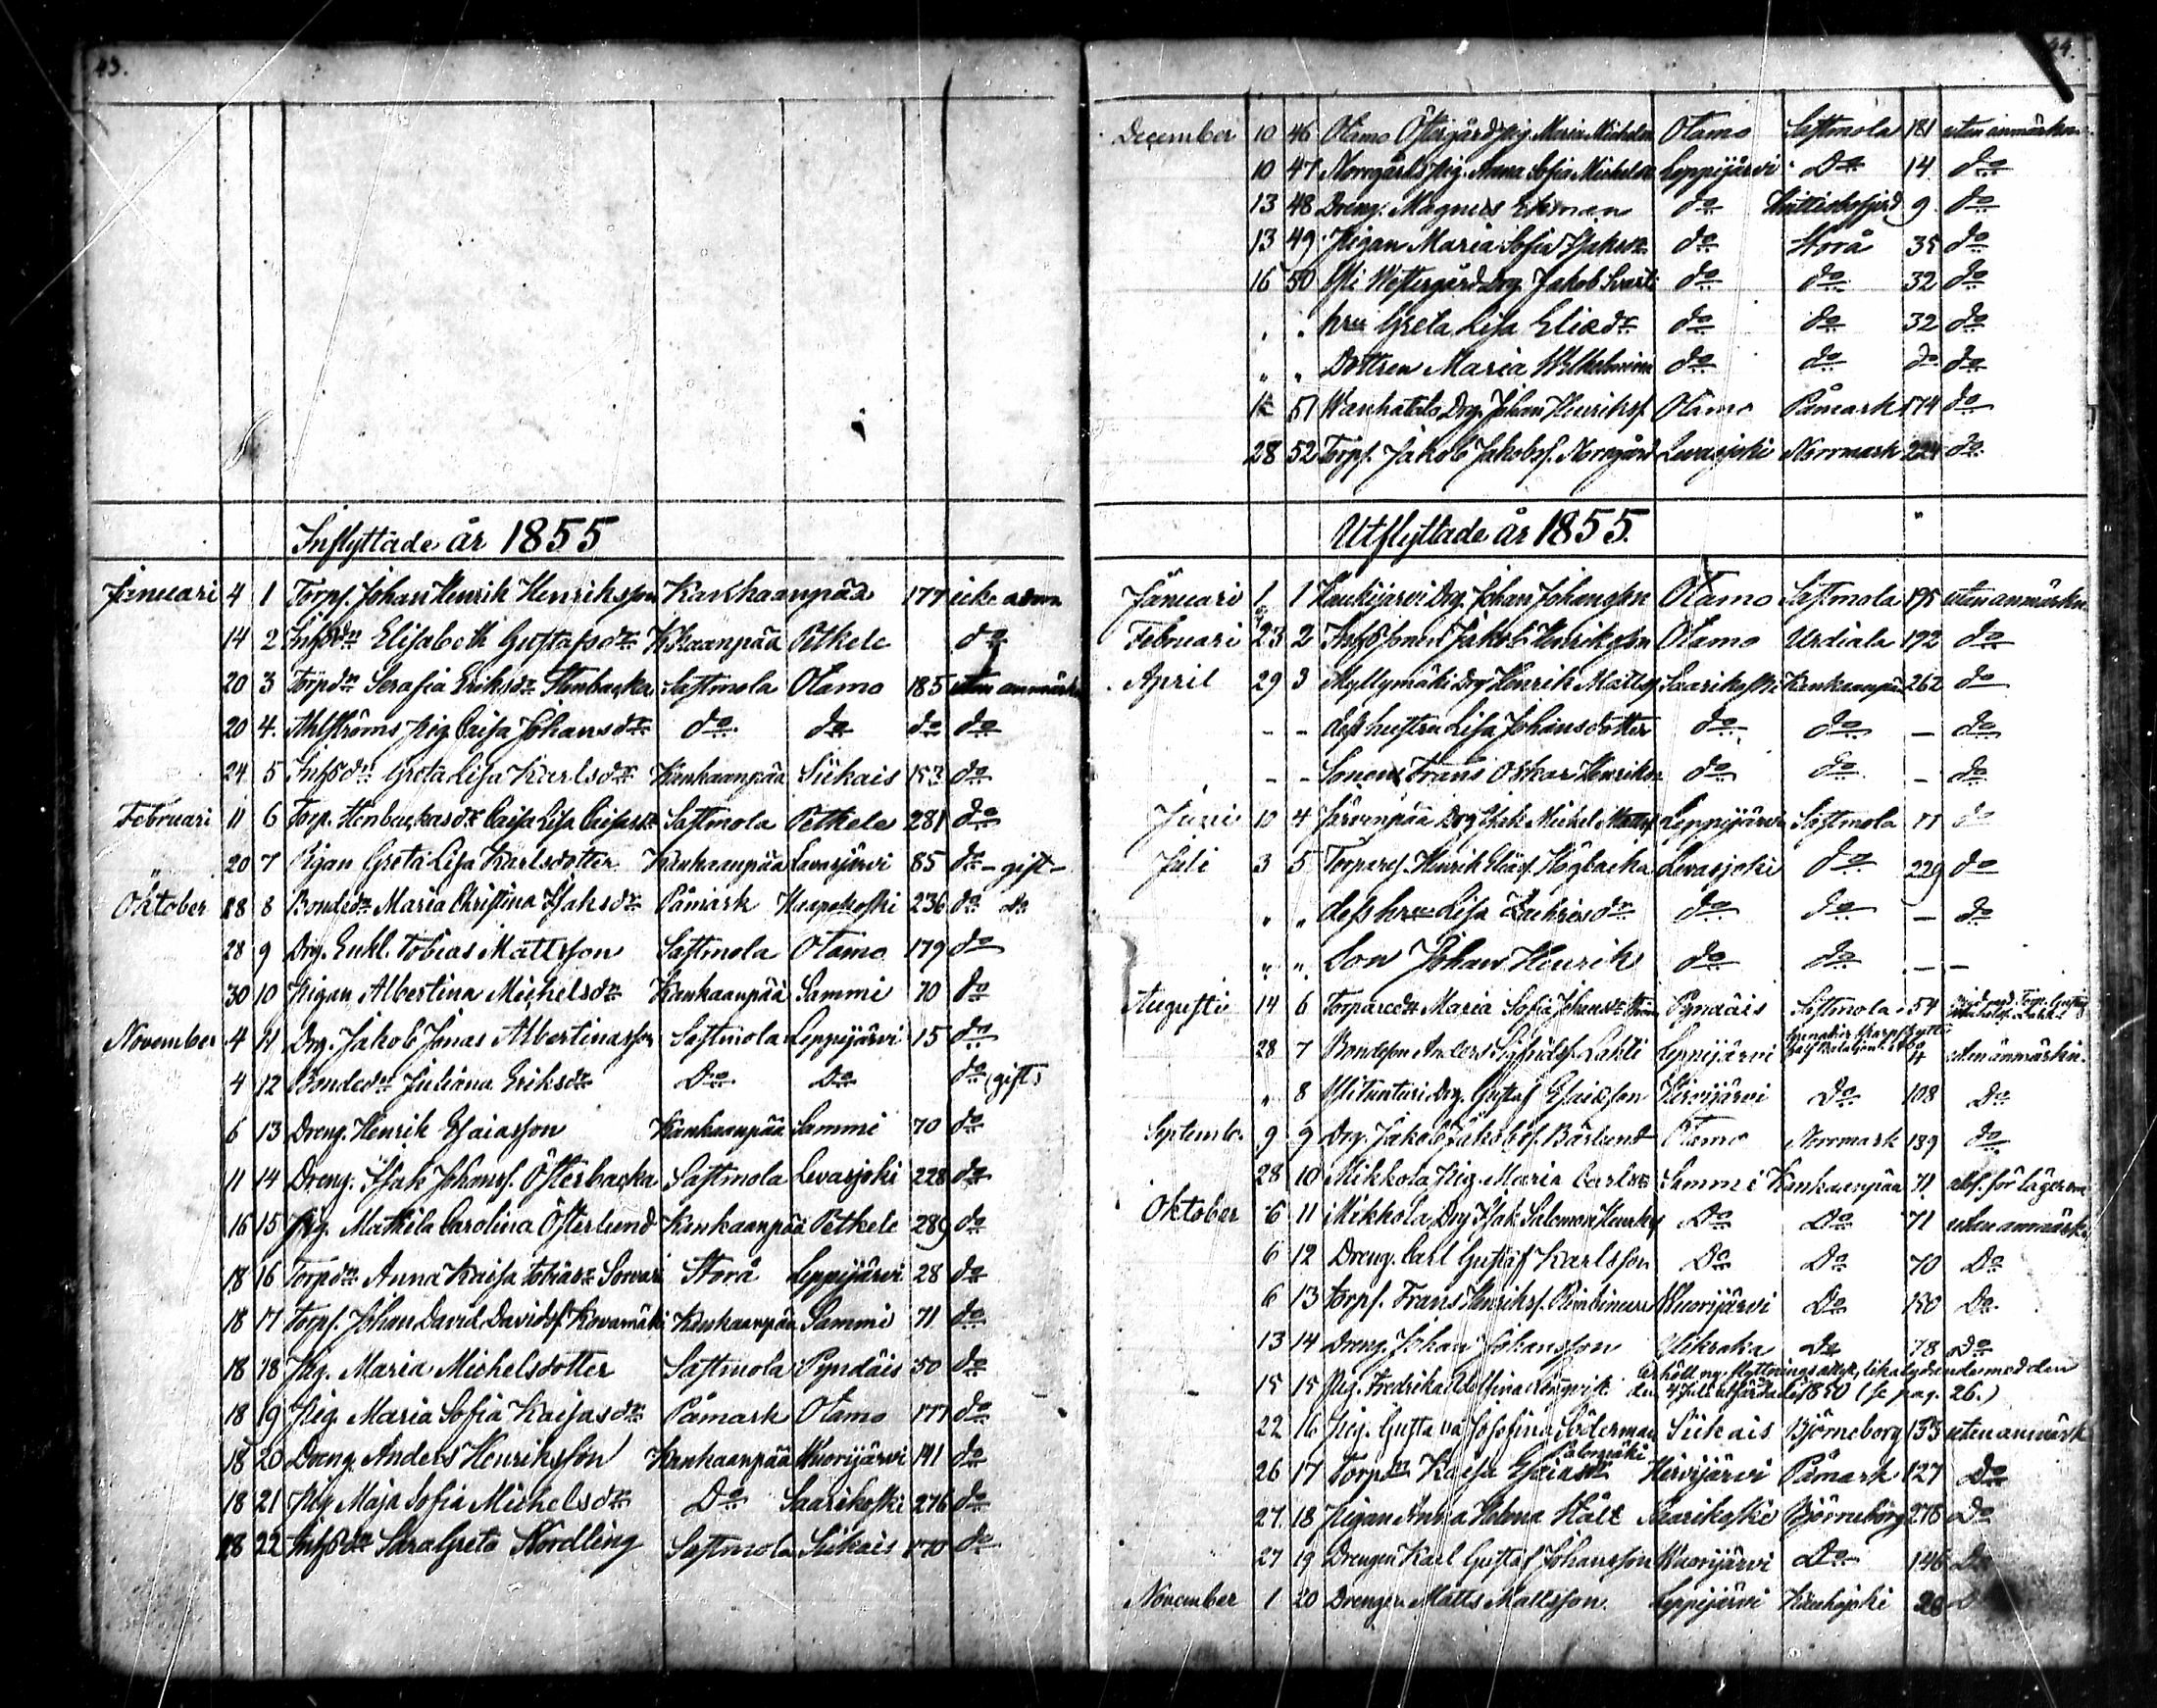 43.
Inflyttade år 1855
Januari 4 1 Torps. Johan Henrik Henriksson Kankaanpää 177
14 2 Inhs dr Elisabeth Gustafsdr Kkaanpää Petkele do
20 3 Torpdr Serafia Eriksdr Stenbacka Sastmola Otamo 185 utan anmärkn
20 4. Ahlströms pig Caisa Johansdr do do do do
24 5 Inhs dr Greta Lisa Karlsdr Kankaanpää Siikais 153 do
Februari 11 6 Torp. Stenbackas dr Caisa Lisa Caisasdr Sastmola Petkele 281 do
20 7 Pigan Greta Lisa Karlsdotter Kankaanpää Levasjärvi 85 do - gift -
Oktober 28 8 Bondedr Maria Christina Isaksdr Påmark Haapakoski 236 do do
28 9 Drg. Enkl. Tobias Mattsson Sastmola Otamo 179 do
30 10 Pigan Albertina Michelsdr Kankaanpää Sammi 70 do
November 4 11 Drg. Jakob Jonas Albertinasson Sastmola Leppijärvi 15 do
4 12 Bondedr Juliana Eriksdr Do Do do (gift)
6 13 Dreng. Henrik Esaiasson Kankaanpää Sammi 70 do
11 14 Dreng. Isak Johanss. Österbacka Sastmola Levasjoki 228 do
16 15 Pig. Mathila Carolina Österlund Kankaanpää Petkele 289 do
18 16 Torpdr Anna Kaisa Tobiasdr Storå Leppijärvi 28 do
18 17 Torps. Johan David Davidsf. Kovamäki Kankaanpää Sammi 71 do
18 18 Pig. Maria Michelsdotter Sastmola Pyndäis 50 do
18 19 Pig Maria Sofia Kaisasdr Påmark Otamo 177 do
18 20 Dreng Anders Henriksson Kankaanpää Wuorijärvi 141 do
18 21 Pig Maja Sofia Michelsdr Do Saarikoski 276 do
28 22 Inhs dr Sara Greta Nordling Sastmola Siikais 170 do
44.
December 10 46 Otamo Östergård pig. Maria Michelsdr Otamo Sastmola 181 utan anmärkn.
10 47 Norrgårds pig. Anna Sofia Michelsdr Leppijärvi Do 14 do
13 48 Dreng. Magnus Ekman do 9 do
13 49 Pigan Maria Sofia Isaksdr do Storå 35 do
16 50 Westergård Drg. Jakob do do 32 do
" " hru Greta Lisa Eliædr do do 32 do
" " Dottren Maria Wilhelmina do do do do
51 Wanhatalo Drg. Johan Henriksf. Otamo Påmark 174 do
28 52 Torps. Jakob Jakobsf. Norrgård Levasjoki Norrmark 224 do
Utflyttade år 1855.
Januari 1 1 Haukijärvi Drg. Johan Johansson Otamo Sastmola 195 utan anmärkn.
Februari 23 2 Inhs Sonen Jakob Henriksson Otamo Urdiala 192 do
April 29 3 Myllymäki Drg Henrik Mattsf Saarikoski Kankaanpää 262 do
- - dess hustru Lisa Johansdotter do do - do
- - Sonen Frans Oskar Henriksn do do - do
Juni 10 4 Järvenpää Drg Isak Michel Mattsf Leppijärvi Sastmola 11 do
Juli 3 5 Torpares. Henrik Eliæs. Högbacka Levasjoki do 229 do
" " dess hru Lisa Zachrisdr do do - do
" " Son Johan Henrik do do - -
Augusti 14 6 Torparedr Maria Sofia Johansdr Pyndäis Sastmola 54
28 7 Bondeson Anders Sigfridsf. Lahti Leppijärvi utan anmärkn.
" 8 Drg. Gustaf Esaiasson Hirvijärvi Do 108 Do
Septemb. 9 9 Drg. Jakob Jakobsf. Bärlund Otamo Norrmark 189 do
28 10 Mikkola Pig. Maria Carlsdr Sammi Kankaanpää 71
Oktober 6 11 Mikkola Drg Isak Salomon Henriksf Do Do 71 utan anmärkn
6 12 Dreng. Carl Gustaf Karlsson Do Do 70 Do
6 13 Torps. Frans Henriksf. Wuorijärvi Do 150 Do
13 14 Dreng. Johan Johansson Do 78 Do
15 15 Pig. Fredrika Adolfina Erhöll ny flyttnings attest, lika lydande med den
den 4 Juli utfärdade 1850 (se pag. 26.)
22 16 Pig. Gustava Josefina Söderman Siikais Björneborg 133 utan anmärk
26 17 Torpdr Kaisa Esaiasdr Salomäki Hirvijärvi Påmark 127 Do
27 18 Pigan Anna Helena Stålt Saarikoski Björneborg 275 Do
27 19 Drengen Karl Gustaf Johansson Wuorijärvi Do 146 Do
November 1 20 Drengen Matts Mattsson. Leppijärvi 26 D